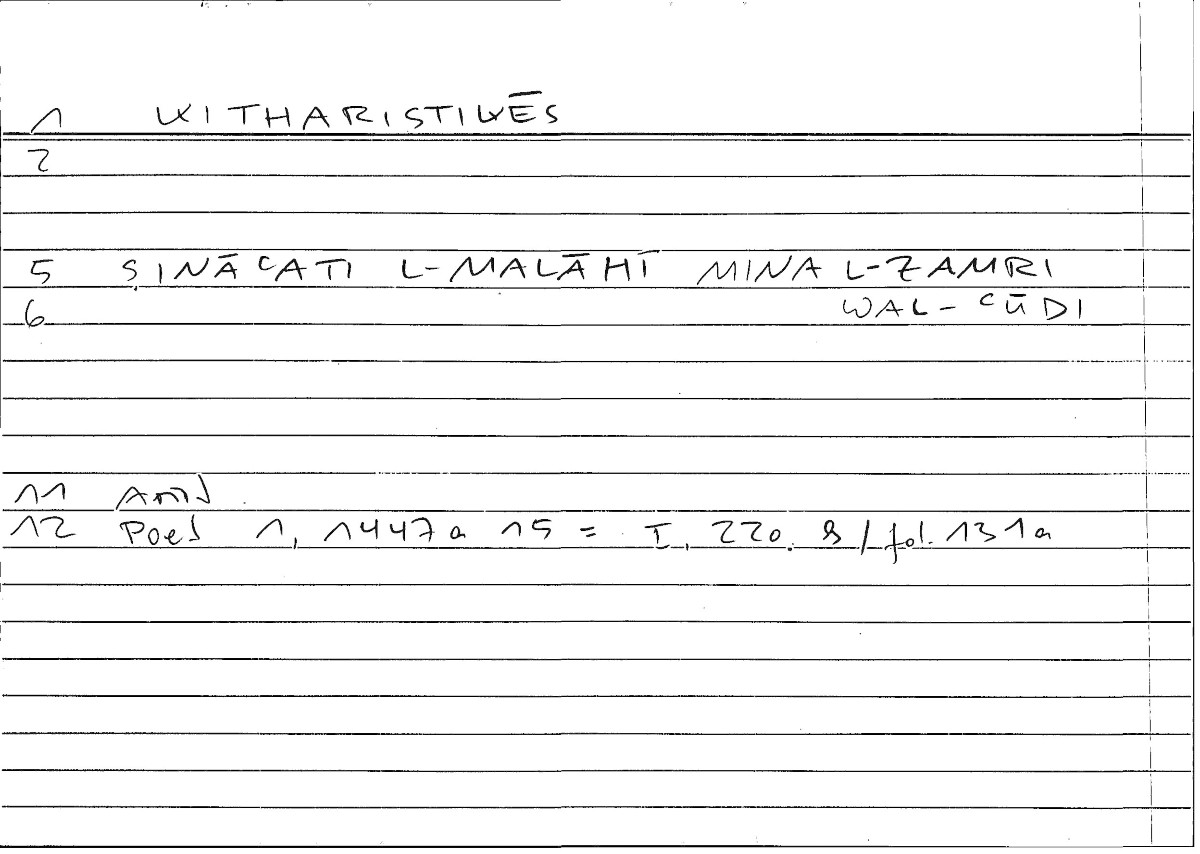 1 KITHARISTIKĒS
2
5 ṢINĀʿATI L-MALĀHĪ MINA L-ZAMRI
6 WAL-ʿŪDI
11 Arist
12 Poet 1, 1447a 15 = I, 220. 8 / fol. 131a